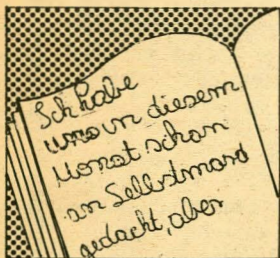 Ich habe
in diesem
Monat schon
an Selbstmord
gedacht, aber